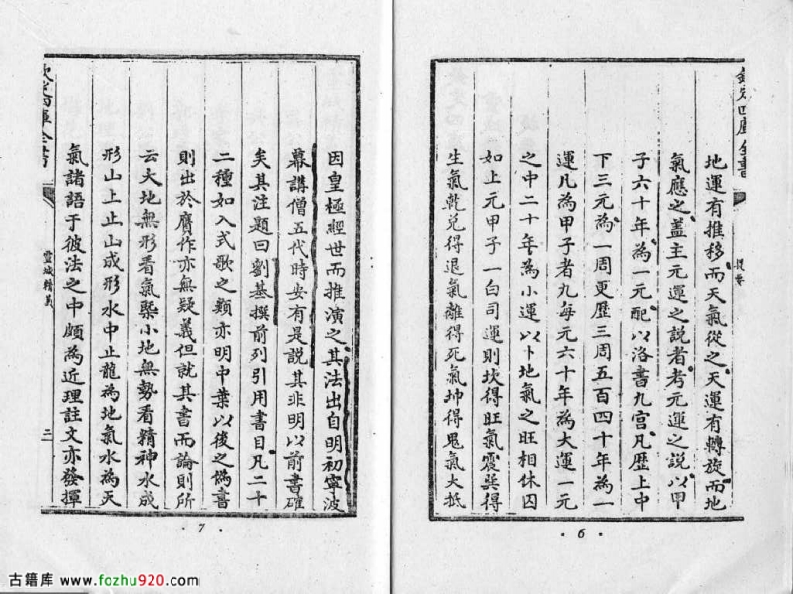 欽定四庫全書
提要
地運有推移而天氣從之天運有轉旋而地
氣應之蓋主元運之說者考元運之說以甲
子六十年為一元配以洛書九宮凡歷上中
下三元為一周更歷三周五百四十年為一
運凡為甲子者九每元六十年為大運一元
之中二十年為小運以卜地氣之旺相休囚
如上元甲子一白司運則坎得旺氣震巽得
生氣乾兌得退氣離得死氣坤得鬼氣大抵
· 6 ·
因皇極經世而推演之其法出自明初寧波
幕講僧五代時安有是說其非明以前書確
矣其注題曰劉基撰前列引用書目凡二十
二種如入式歌之類亦明中葉以後之偽書
則出於贗作亦無疑義但就其書而論則所
云大地無形看氣槩小地無勢看精神水成
形山上止山成形水中止龍為地氣水為天
氣諸語于彼法之中頗為近理註文亦發揮
欽定四庫全書
靈城精義
二
· 7 ·
古籍库 www.fozhu920.com